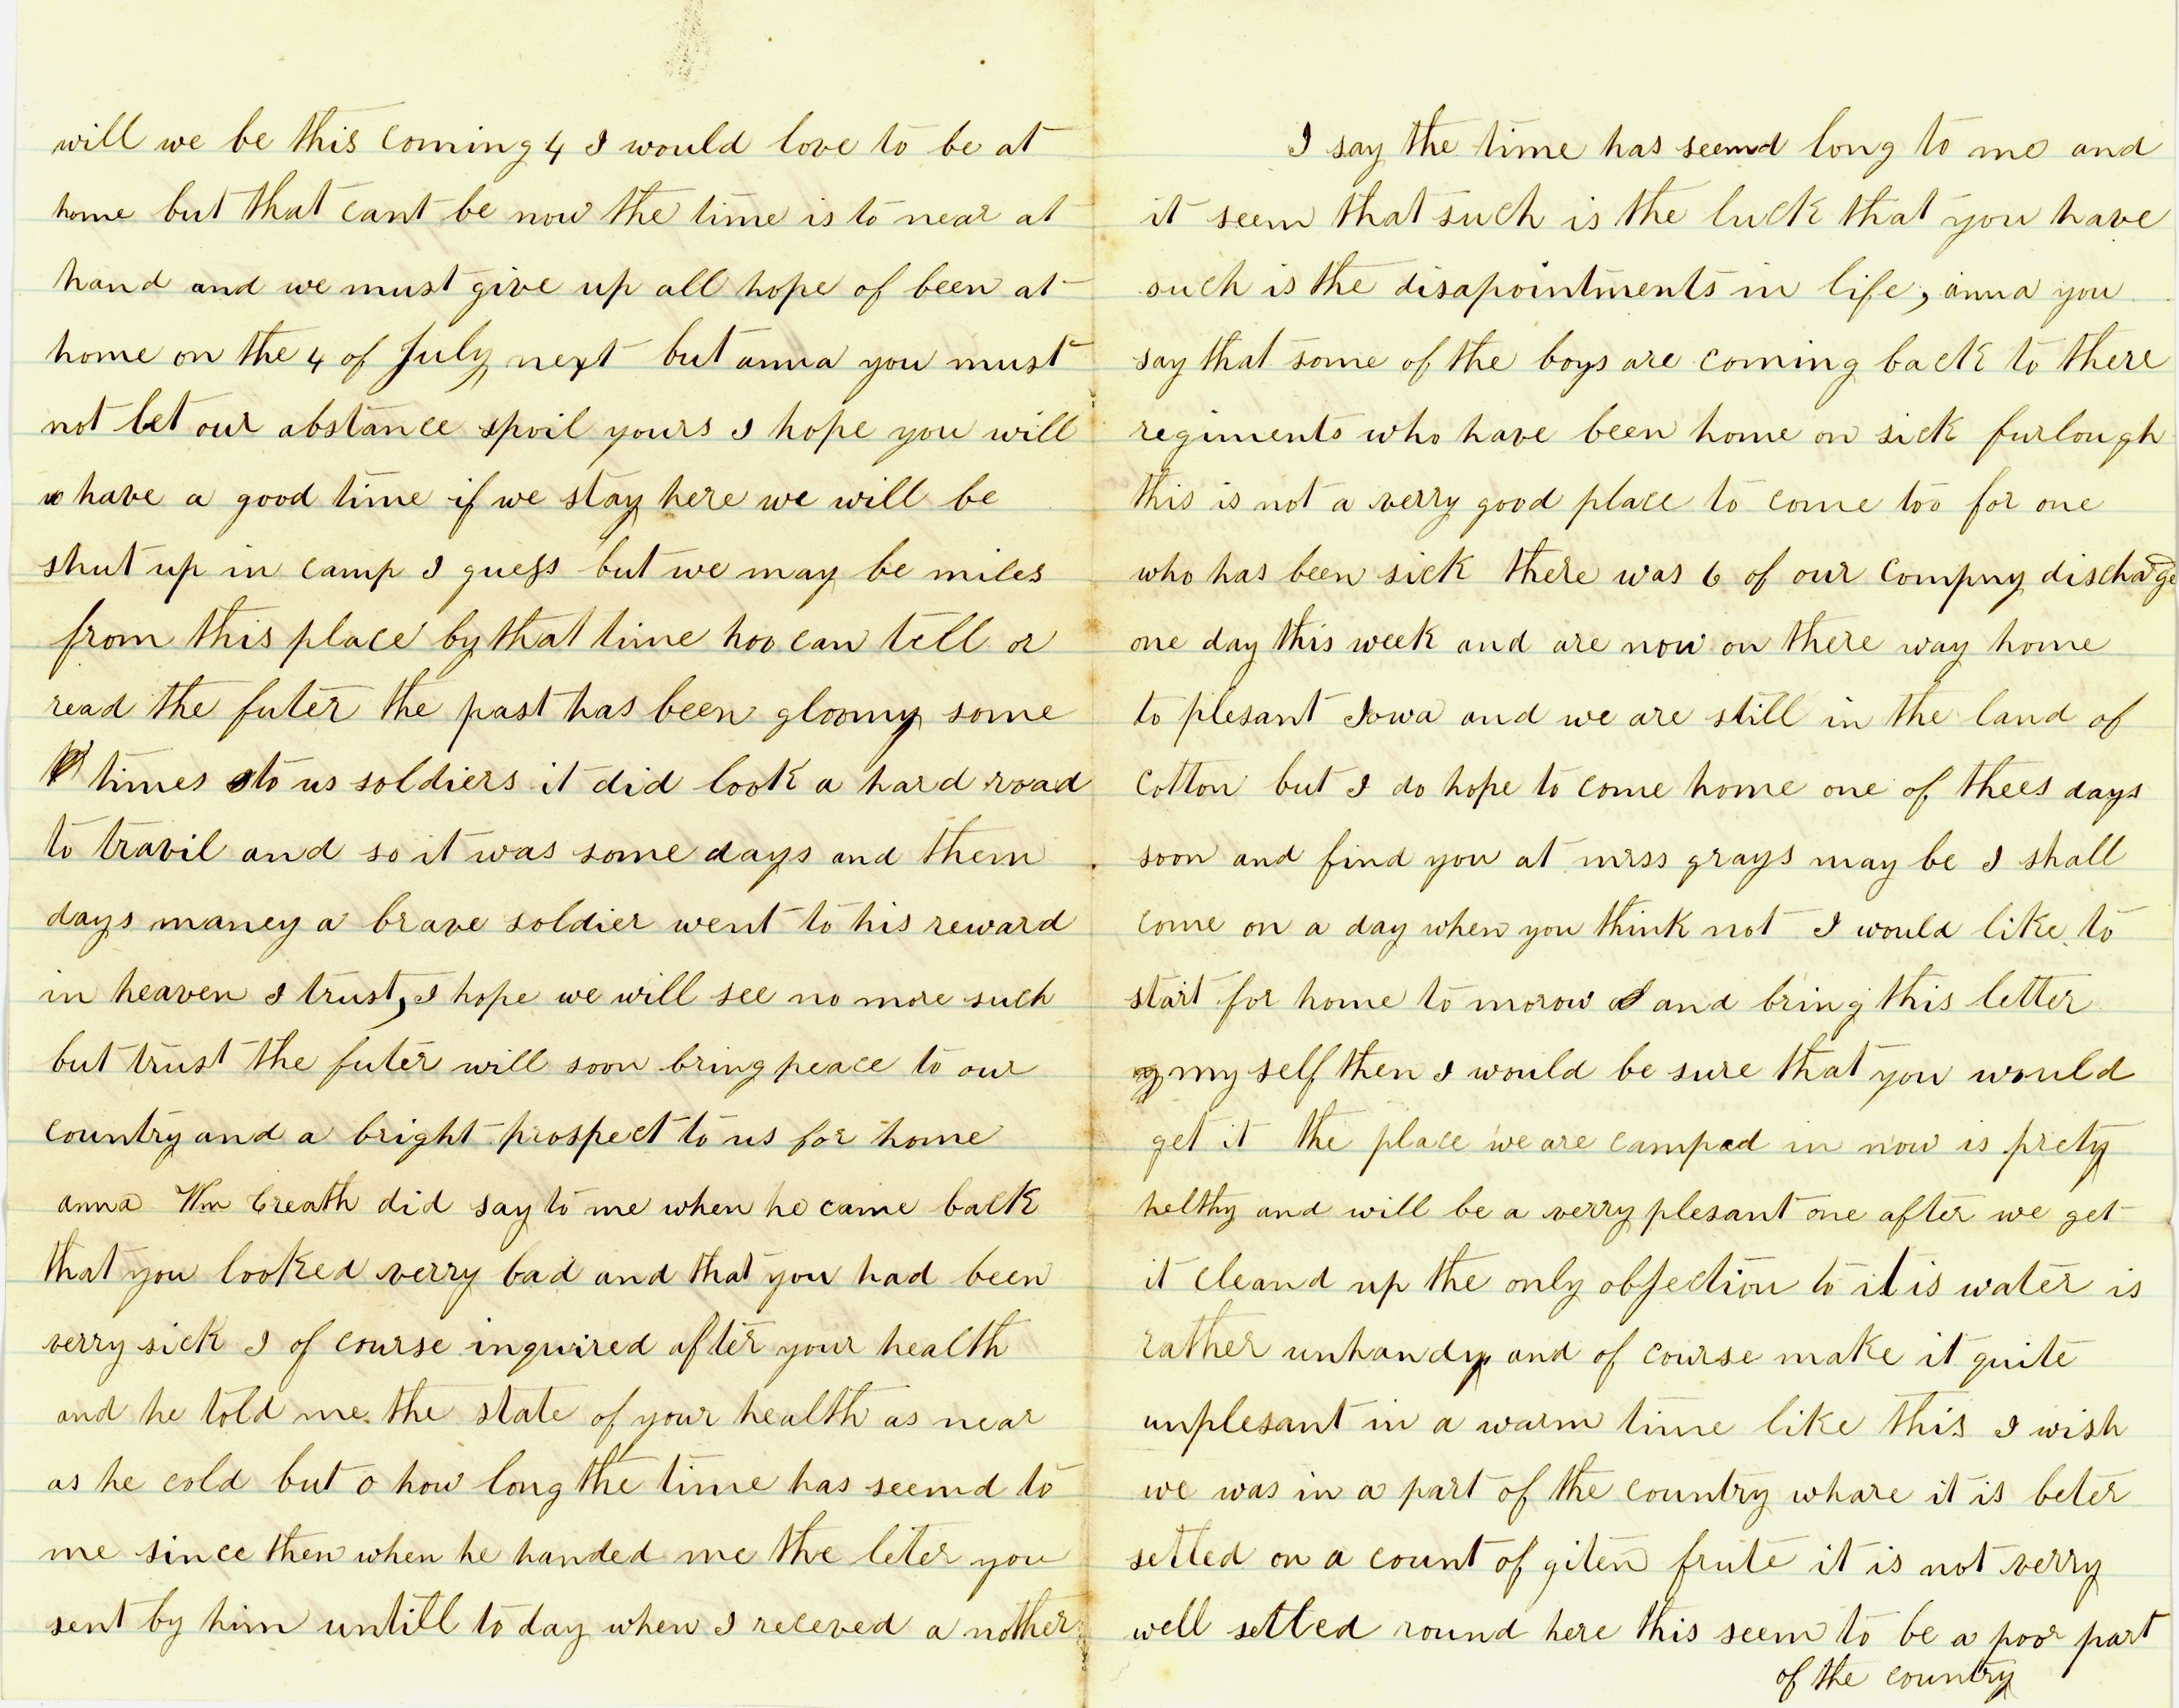 will we be this coming 4 I would love to be at
home but that cant be now the time is to near at
hand and we must give up all hope of been at
home on the 4 of July next but anna you must
not let our abstance spoil yours I hope you will
have a good time if we stay here we will be
shut up in camp I guess but we may be miles
from this place by that time hoo can tell or
read the futer the past has been gloomy some
times to us soldiers it did look a hard road
to travil and so it was some days and them
days maney a brave soldier went to his reward
in heaven I trust, I hope we will see no more such
but trust the futer will soon bring peace to our
country and a bright prospect to us for home
anna Wm Creath did say to me when he came back
that you looked verry bad and that you had been
verry sick I of course inquired after your health
and he told me the state of your health as near
as he cold but o how long the time has seemd to
me since then when he handed me the leter you
sent by him untill to day when I receved a nother
I say the time has seemd long to me and
it seem that such is the luck that you have
such is the disapointments in life, anna you
say that some of the boys are coming back to there
regiments who have been home on sick furlough
this is not a verry good place to come too for one
who has been sick there was 6 of our compny discharge
one day this week and are now on there way home
to plesant Iowa and we are still in the land of
cotton but I do hope to come home one of thees days
soon and find you at mrss grays may be I shall
come on a day when you think not I would like to
start for home to morow and bring this letter
my self then I would be sure that you would
get it the place we are camped in now is prety
helthy and will be a verry plesant one after we get
it cleand up the only objection to it is water is
rather unhandy and of course make it quite
unplesant in a warm time like this I wish
we was in a part of the country whare it is beter
setled on a count of giten frute it is not verry
well setled round here this seem to be a poor part
of the country